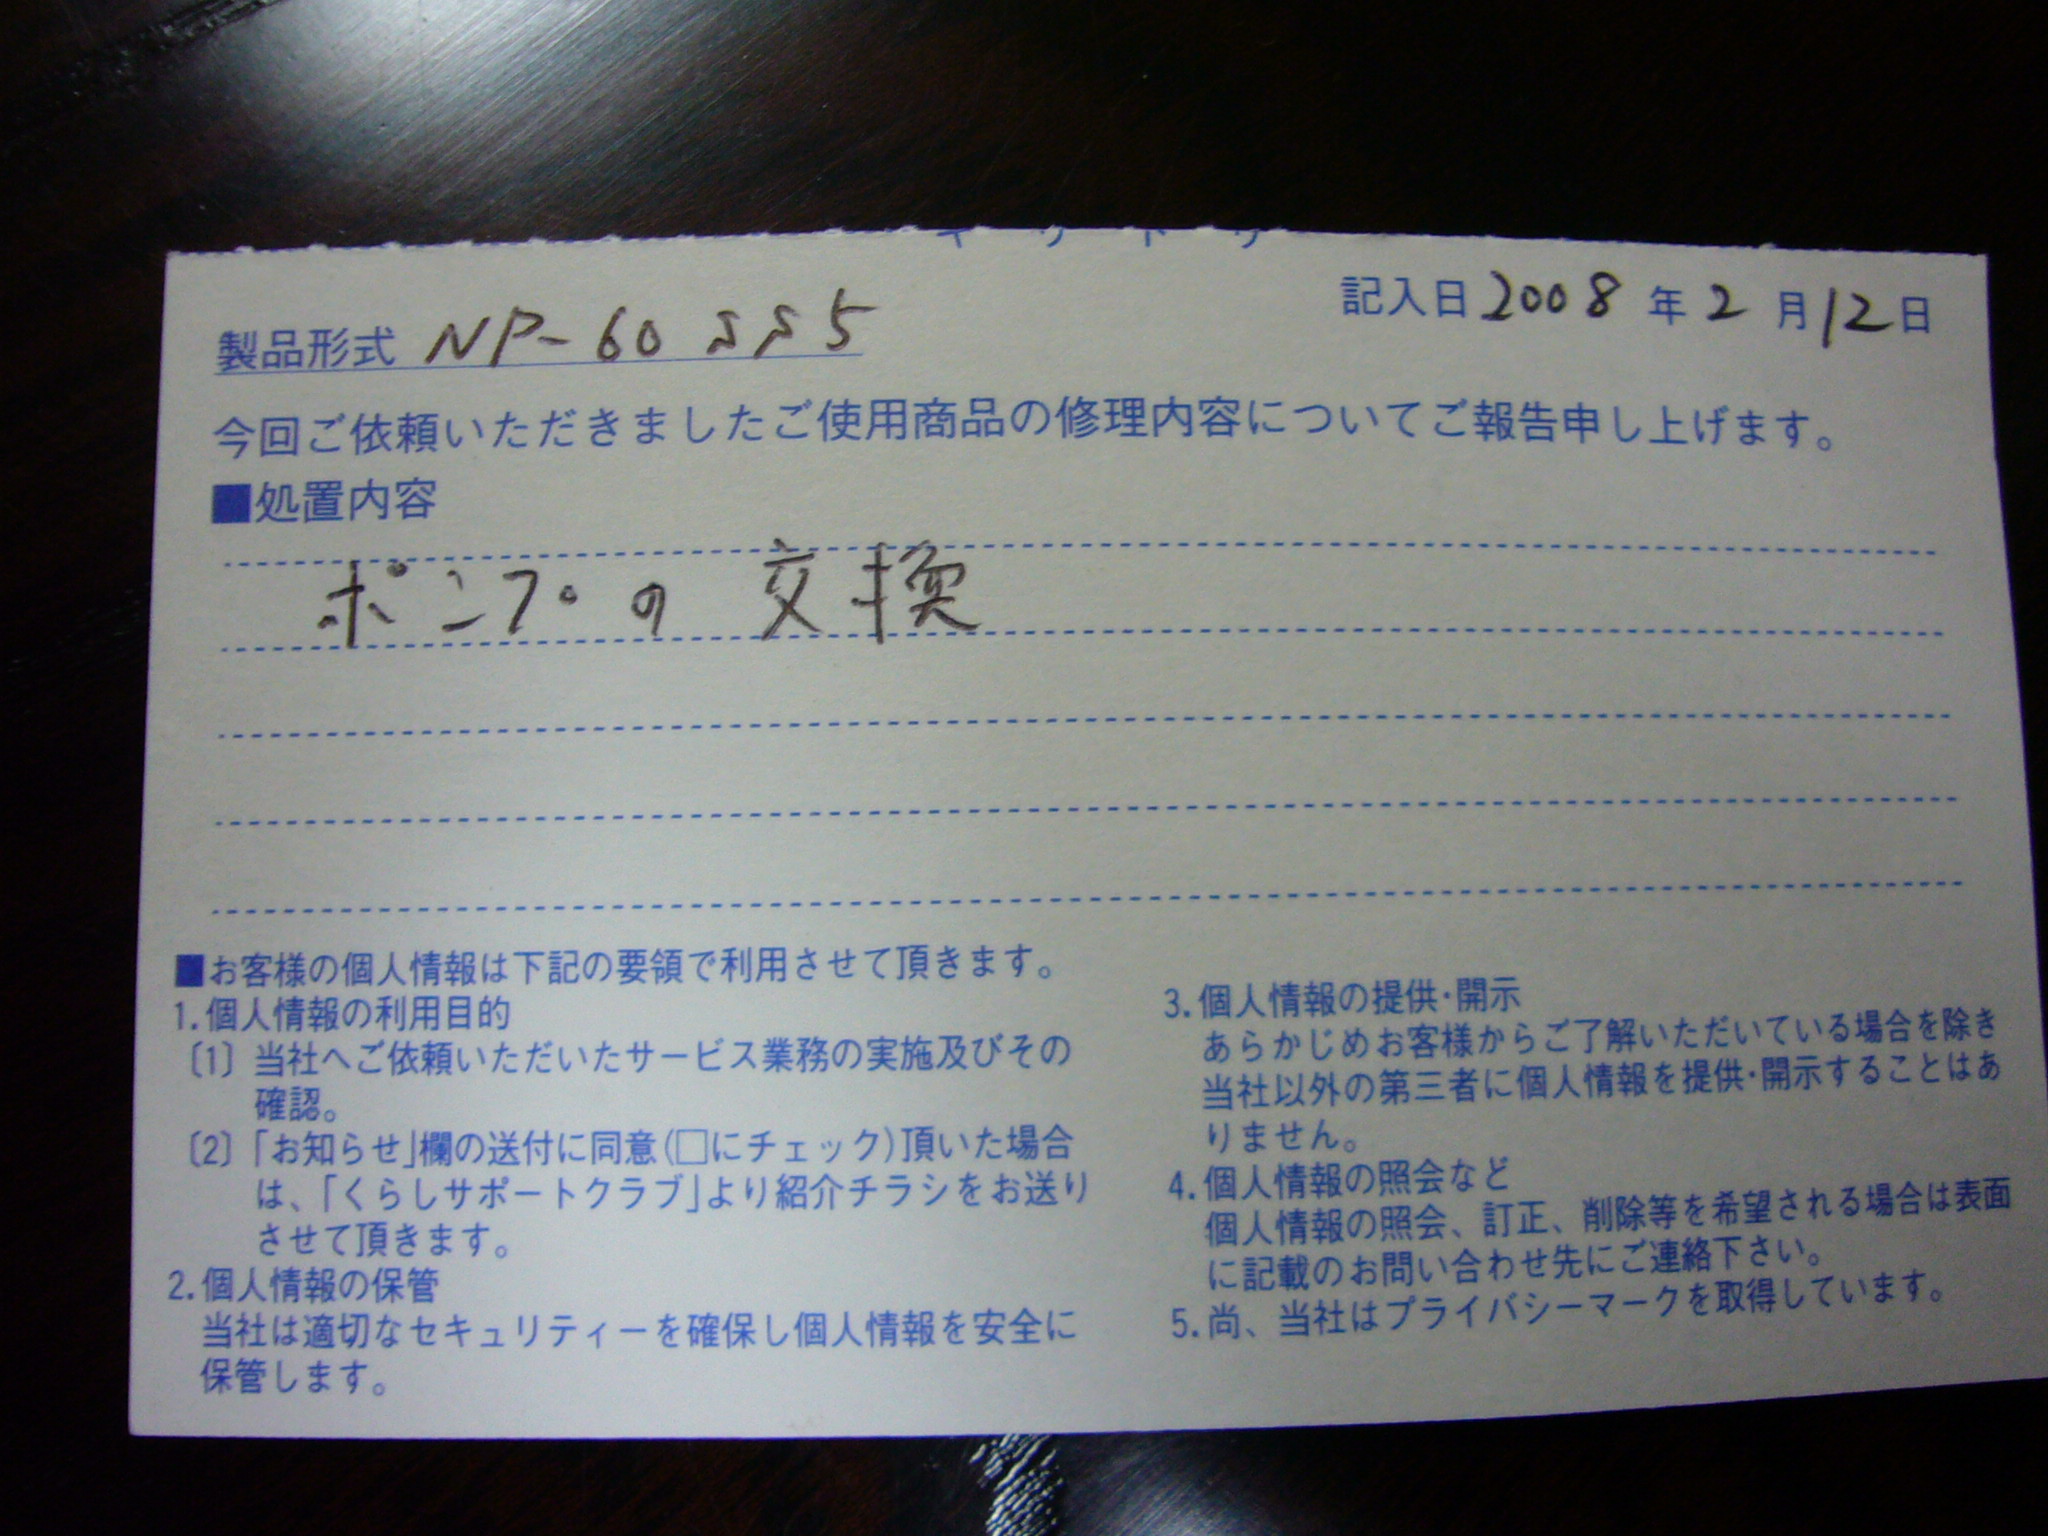 キリトリ
記入日 2008 年 2 月 12 日
製品形式 NP-60SS5
今回ご依頼いただきましたご使用商品の修理内容についてご報告申し上げます。
■処置内容
ポンプの交換
■お客様の個人情報は下記の要領で利用させて頂きます。
1.個人情報の利用目的
〔1〕当社へご依頼いただいたサービス業務の実施及びその
確認。
〔2〕「お知らせ」欄の送付に同意(□にチェック)頂いた場合
は、「くらしサポートクラブ」より紹介チラシをお送り
させて頂きます。
2.個人情報の保管
当社は適切なセキュリティーを確保し個人情報を安全に
保管します。
3.個人情報の提供・開示
あらかじめお客様からご了解いただいている場合を除き
当社以外の第三者に個人情報を提供・開示することはあ
りません。
4.個人情報の照会など
個人情報の照会、訂正、削除等を希望される場合は表面
に記載のお問い合わせ先にご連絡下さい。
5.尚、当社はプライバシーマークを取得しています。